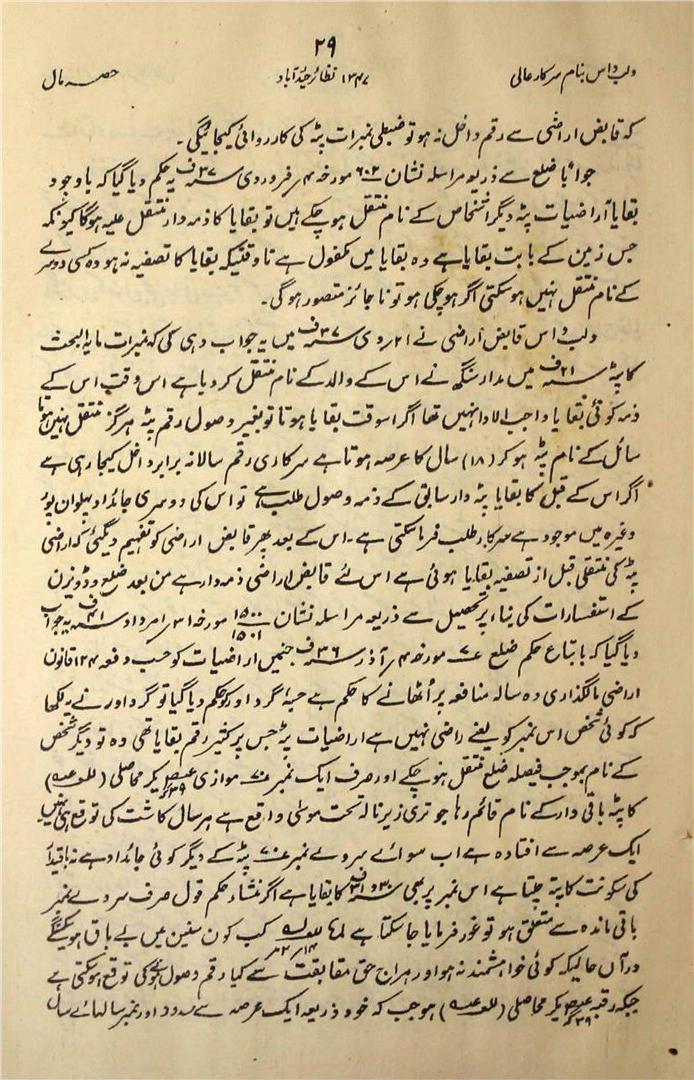 ۲۹
ولبداس بنام سرکار عالی ۱۳۴۷ نظائر حیدرآباد حصہ مال
کہ قابض اراضی سے رقم داخل نہ ہو تو ضبطی نمبرات پٹہ کی کارروائی کیجائیگی۔
جواباً ضلع سے ذریعہ مراسلہ نشان ۶۰۳ مورخہ ۴؍ فروردی ۳۷ سنہ ف یہ حکم دیا گیا کہ باوجود
بقایا اراضیات پٹہ دیگر اشخاص کے نام منتقل ہو چکے ہیں تو بقایا کا ذمہ دار منتقل علیہ ہوگا کیونکہ
جس زمین کے بابت بقایا ہے وہ بقایا میں مکفول ہے تاوقتیکہ بقایا کا تصفیہ نہ ہو وہ کسی دوسرے
کے نام منتقل نہیں ہوسکتی اگر ہوچکی ہو تو ناجائز متصور ہوگی۔
ولبداس قابض اراضی نے ۲۱؍ دی ۳۷ سنہ ف میں یہ جواب دہی کی کہ نمبرات مابہ البحث
کا پٹہ ۲۱ سنہ ف میں مدار سنگھ نے اس کے والد کے نام منتقل کر دیا ہے اس وقت اس کے
ذمہ کوئی بقایا واجب الادا نہیں تھا اگر اسوقت بقایا ہوتا تو بغیر وصول رقم پٹہ ہرگز منتقل نہیں ہوتا
سائل کے نام پٹہ ہو کر (۱۸) سال کا عرصہ ہوتا ہے سرکاری رقم سالانہ برابر داخل کیجا رہی ہے
اگر اس کے قبل کا بقایا پٹہ دار سابق کے ذمہ وصول طلب ہے تو اس کی دوسری جائداد پہلوان پور
وغیرہ میں موجود ہے سرکار طلب فرما سکتی ہے۔ اس کے بعد پھر قابض اراضی کو تفہیم دیگئی کہ اراضی
پٹہ کی منتقلی قبل از تصفیہ بقایا ہوئی ہے اس لئے قابض اراضی ذمہ دار ہے من بعد ضلع و ڈویزن
کے استفسارات کی بناء پر تحصیل سے ذریعہ مراسلہ نشان ۱۵۰۰ / ۱۵۰۱ مورخہ ۳۱؍ امرداد ۴۱ سنہ ف یہ جواب
دیا گیا کہ باتباع حکم ضلع مورخہ ۴؍ آذر ۳۶ سنہ ف جنمیں اراضیات کو حسب دفعہ ۲۴ قانون
اراضی مالگذاری دہ سالہ منافعہ پر اٹھانے کا حکم ہے گرداور کو حکم دیا گیا تو گرداور نے یہ لکھا
کہ کوئی شخص اس نمبر کو لینے راضی نہیں ہے اراضیات پٹہ جس پر کثیر رقم بقایا تھی وہ تو دیگر شخص
کے نام بموجب فیصلہ ضلع منتقل ہو چکے اور صرف ایک نمبر ۷۰ موازی یکر محاصلی
کا پٹہ باقی دار کے نام قائم رہا جو تری زیر نالہ تحت موسٰی واقع ہے ہر سال کاشت کی توقع ہی نہیں
ایک عرصہ سے افتادہ ہے اب سوائے سروے نمبر ۷۰ پٹہ کے دیگر کوئی جائداد ہے نہ باقیدار
کی سکونت کا پتہ چلتا ہے اس نمبر پر بھی ۳۰ و ۳۱ سنہ ف کا بقایا ہے اگر منشاء حکم قول صرف سروے نمبر
باقی ماندہ سے متعلق ہو تو غور فرمایا جا سکتا ہے کب کون سنین میں بے باق ہو سکینگے
درآں حالیکہ کوئی خواہشمند نہ ہو اور ہراج حق مقابقت سے کیا رقم وصول ہونے کی توقع ہو سکتی ہے
جبکہ رقبہ یکر محاصلی ہو جب کہ خود ذریعہ ایک عرصہ سے مسدود اور نمبر سالہائے سال